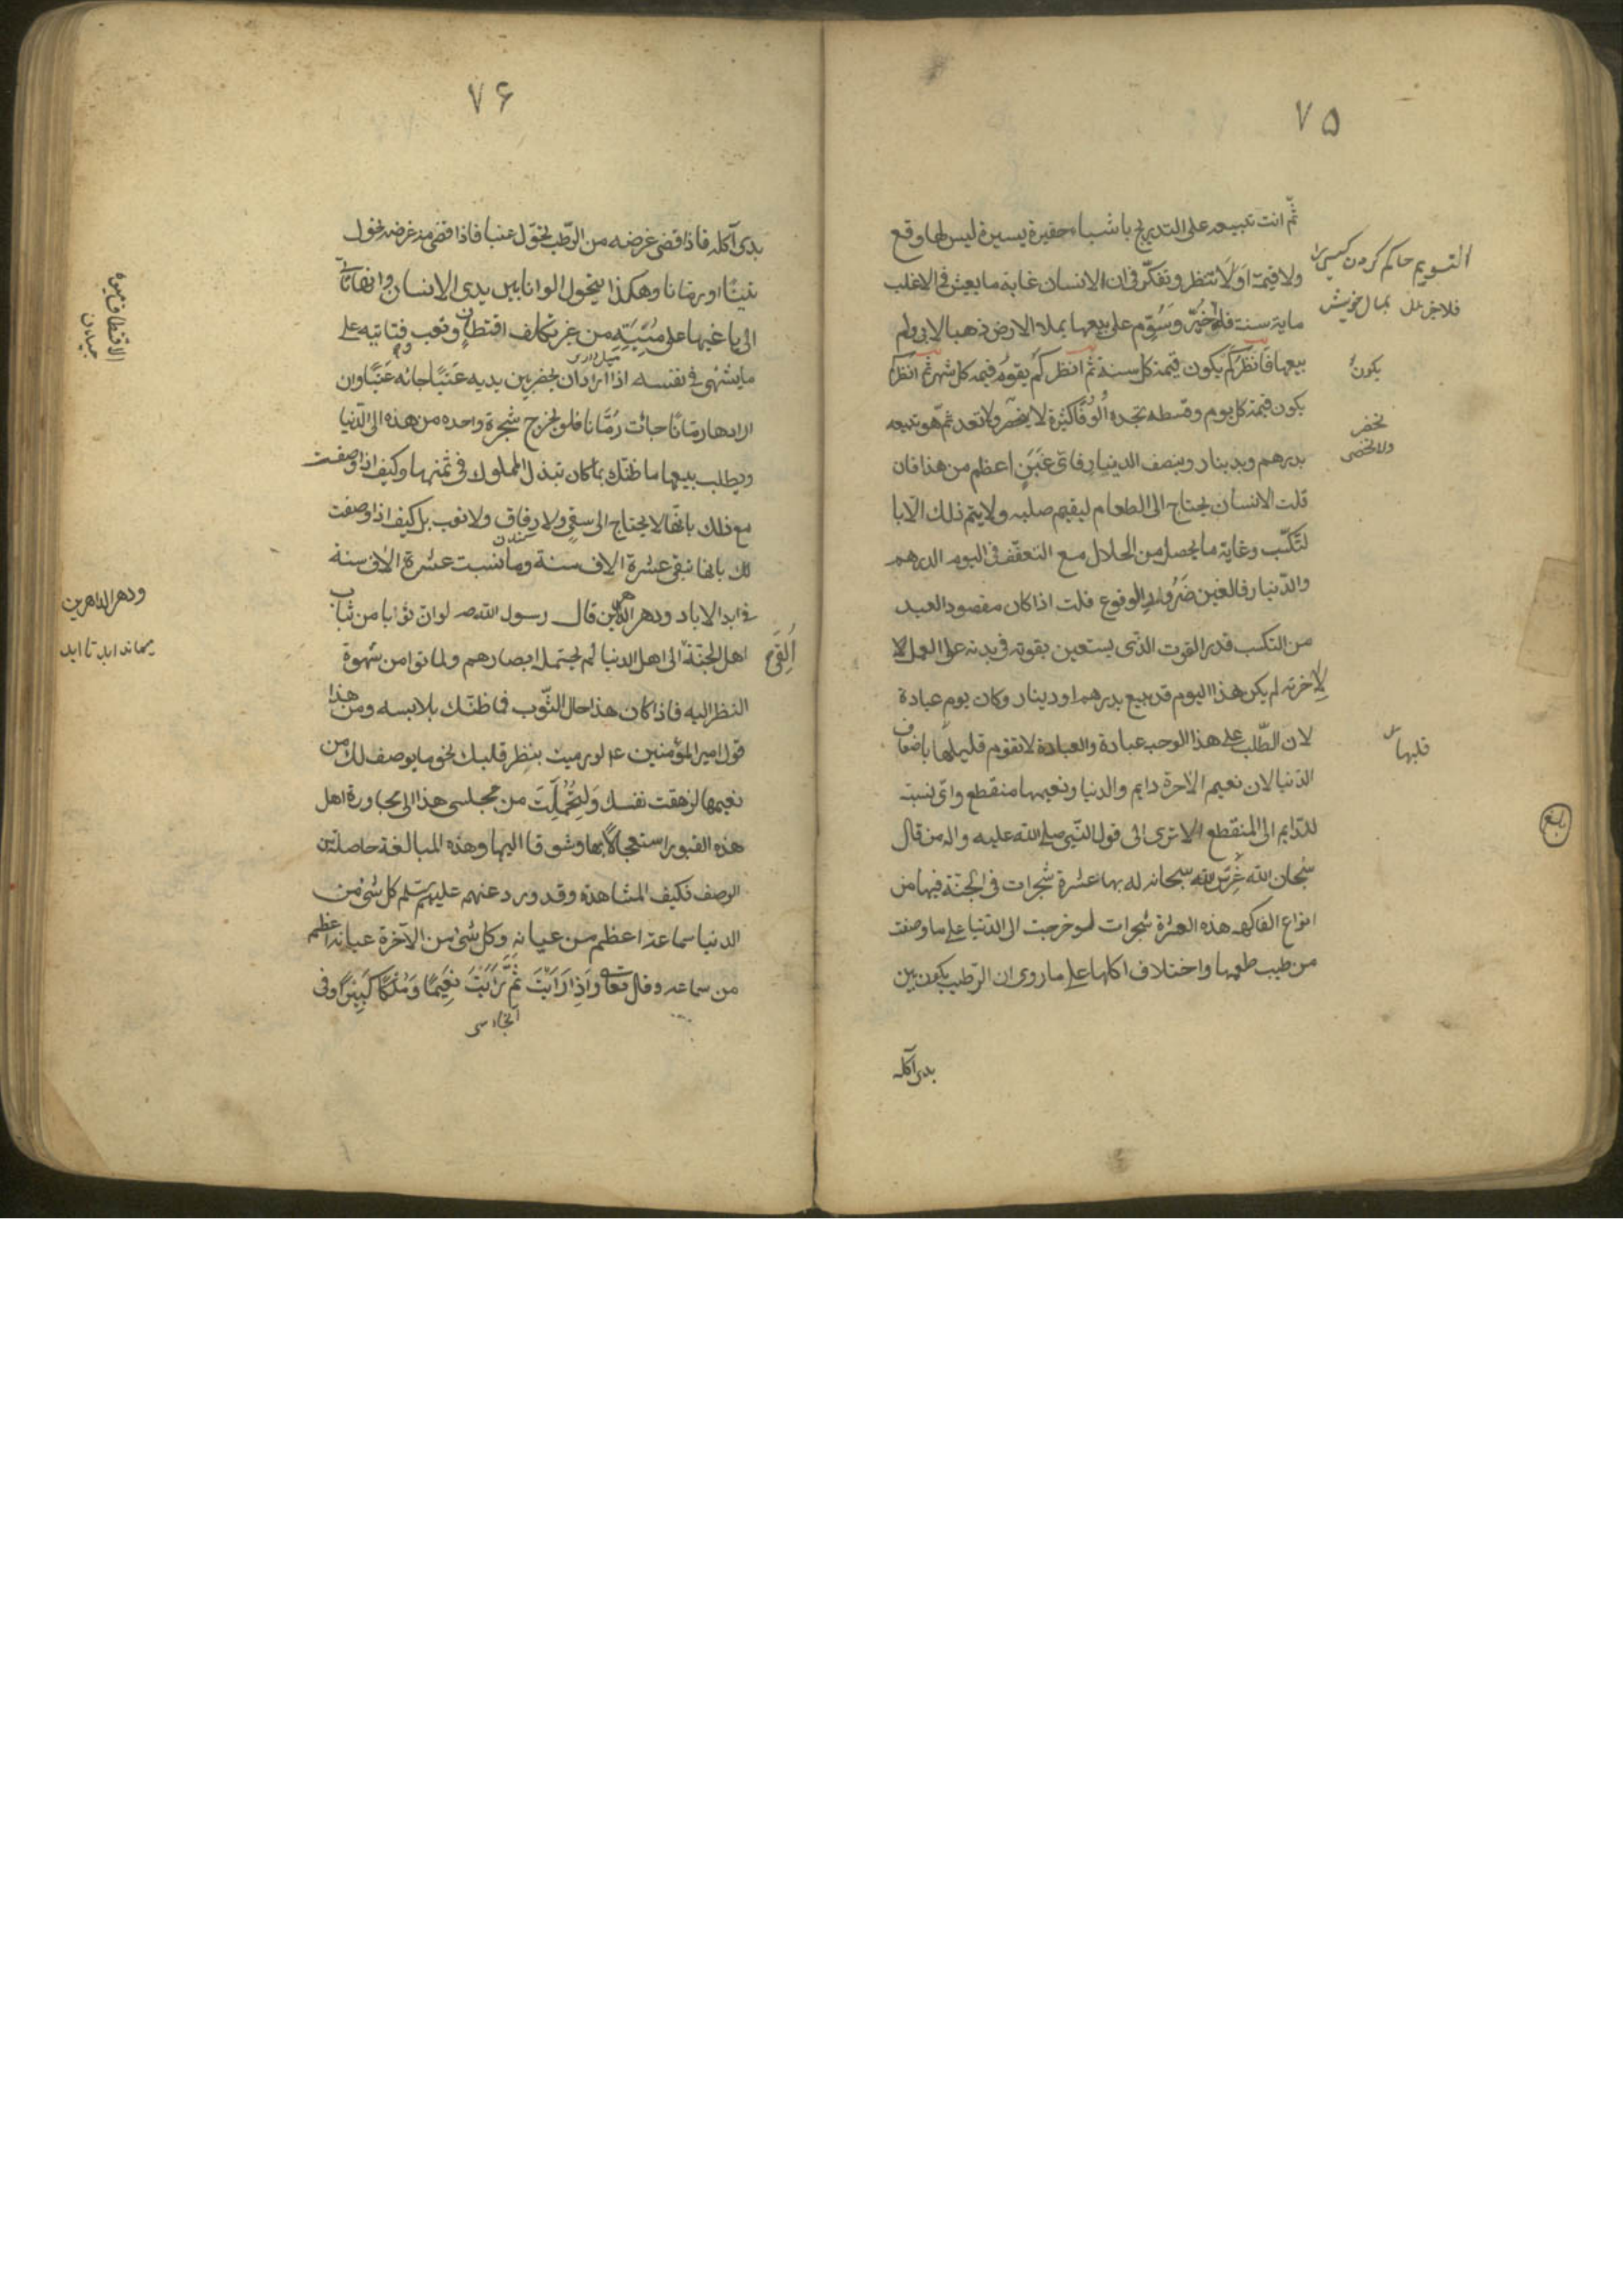 ٧٥
ثمّ انت تبيعه على التدريج باشياء حقيرة يسيرة ليس لها وقع
ولا قيمة اَوَلَا تنظر وتفكّر فى ان الانسان غاية ما يعيش فى الاغلب
ماية سنة فلو خُيِّرَ وسُوِّم على بيعها بملاء الارض ذهبا لابى ولم
بيعها فَانظر كَم يكون قيمة كل سنة ثم انظر كم يقوم قيمه كل شهر ثم انظر
يكون قيمة كل يوم وقسطه تجده اُلُوفًا كثيرة لا يحصر ولا تعد ثمّ هو تبيعه
بدرهم وبدينار وبنصف الدينار فاىّ غَبَنٍ اعظم من هذا فان
قلت الانسان يحتاج الى الطعام ليقيم صلبه ولا يتم ذلك الّا با
لتكسّب وغاية ما يحصل من الحلال مع التعفّف فى اليوم الدرهم
والدّينار فالغبن ضَرُورىّ الوقوع قلت اذا كان مقصود العبد
من التكسب قدر القوت الذّى يستعين بقوته فى بدنه على العمل لا
لِآخرته لم يكن هذا اليوم قد بيع بدرهم او دينار وكان يوم عبادة
لان الطّلب على هذا الوجه عبادة والعبادة لا تقوم قليلها باضعاف
الدّنيا لان نعيم الاخرة دايم والدنيا ونعيمها منقطع واىّ نسبة
للدّايم الى المنقطع الا ترى الى قول النّبى صلى الله عليه واله من قال
سُبحان الله غَرَسَ الله سبحانه له بها عشرة شجرات فى الجنّة فيها من
انواع الفاكهه هذه العشرة شجرات لو خرجت الى الدّنيا على ما وصفت
من طيب طعمها واختلاف اكلها على ما روى ان الرّطب يكون بين
بدى آكله
التسويم حاكم كردن كسى را
بمال خويش
يكونُ
تحصر
ولا تحصى
قليلها
بلغ
٧۶
يدى آكله فاذا قضى غرضه من الرّطب تحَوّل عنبا فاذا قضى منه غرضه تحول
تينًا او رمّانا وهكذا يتحول الوانا بين يدى الانسان
الى باغيها على مُنْيَتِه من غير تكلف اقتطافٍ وتعب
ما يشتهى فى نفسه اذا اراد ان يحضر بين يديه عنَبًا جائه عنَبًا وان
ارادها رمّانًا جائت رُمّانا فلو تخرج شجرة واحده من هذه الى الدّنيا
ويطلب بيعها ما ظنّك بما كان تبذل الملوك فى ثمنها وكيف اذا وصفت
مع ذلك بانّها لا يحتاج الى سقىٍ ولا رِفاقٍ ولا تعب بل كيف اذا وصفت
لك بانها تبقى عشرة الاف سنة وما نسبت عشرة الاف سنة
فى ابد الاباد ودهر الداهرين قال رسول الله ص لو ان ثوابا من ثياب
اهل الجنّة اُلقِىَ الى اهل الدنيا لم يحتمله ابصارهم ولماتوا من شهوة
النظر اليه فاذا كان هذا حال الثّوب فما ظنّك بلابسه ومن هذا
قول امير المؤمنين ع لو رميت بنظر قلبك نحو ما يوصف لك من
نعيمها لزهقت نفسك وَلتَحمّلتَ من مجلسى هذا الى مجاورة اهل
هذه القبور استعجالًا بها وشوقا اليها وهذه المبالغة حاصلة من
الوصف فكيف المشاهدة وقد ورد عنهم عليهم سلم كل شئ من
الدنيا سماعه اعظم من عيانه وكل شئ من الآخرة عيانه اعظم
من سماعه وقال تعالى وَاذِا رَاَيْتَ ثَمَّ رَاَيْتَ نَعِيمًا وَمُلْكًا كَبِيرًا وفى
ودهر الداهرين